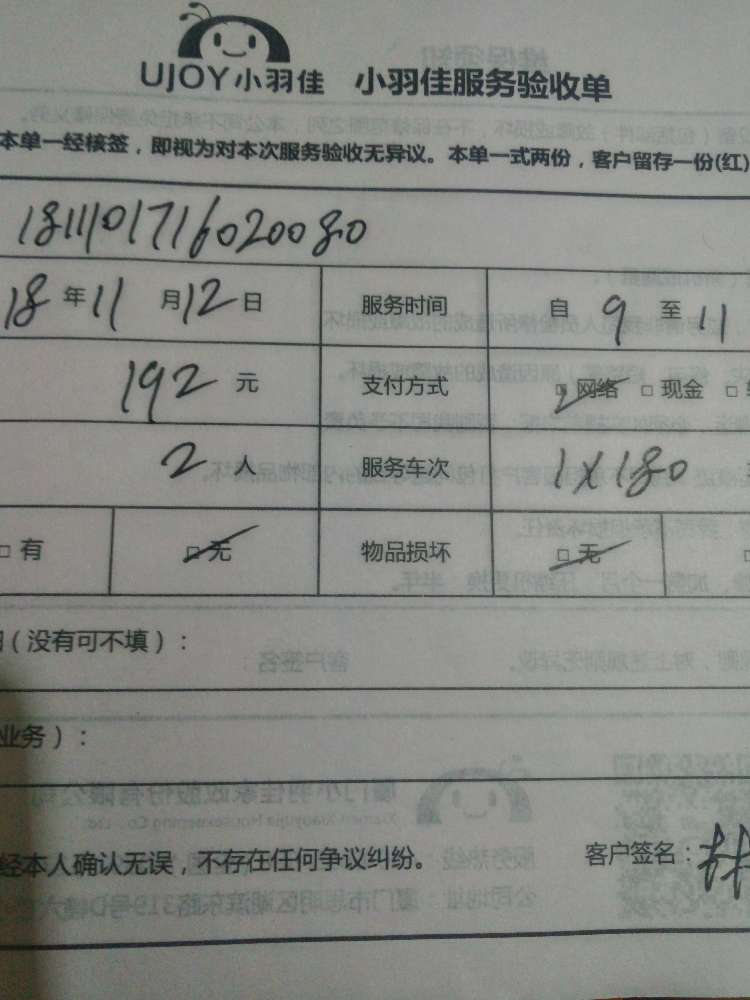 UJOY小羽佳 小羽佳服务验收单
本单一经核签，即视为对本次服务验收无异议。本单一式两份，客户留存一份(红)
1811101716020080
18年11月12日 服务时间 自 9 至 11
192元 支付方式 □网络 □现金 □
2人 服务车次 1X180
□有 □无 物品损坏 □无 □
（没有可不填）：
业务）：
经本人确认无误，不存在任何争议纠纷。 客户签名：